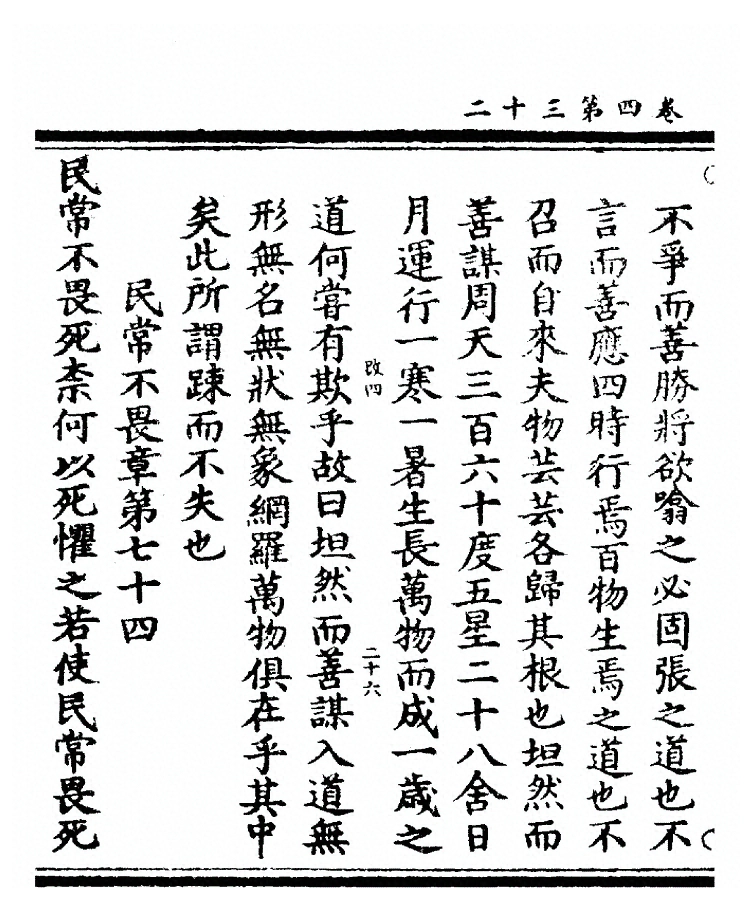 卷四第三十二
不爭而善勝將欲噏之必固張之道也不
言而善應四時行焉百物生焉之道也不
召而自來夫物芸芸各歸其根也坦然而
善謀周天三百六十度五星二十八舍日
月運行一寒一暑生長萬物而成一歲之
改四
二十六
道何嘗有欺乎故曰坦然而善謀入道無
形無名無狀無象網羅萬物俱在乎其中
矣此所謂踈而不失也
民常不畏章第七十四
民常不畏死柰何以死懼之若使民常畏死